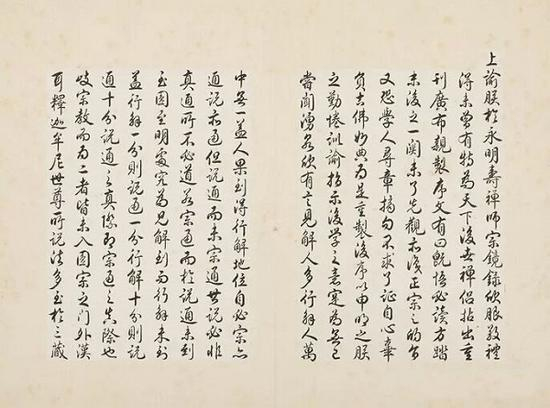 上諭朕於永明壽禪師宗鏡錄欣服敬禮
得未曾有特為天下後世禪侶拈出重
刊廣布親製序文有曰既悟必讀方踏
末後之一關未了先觀亦識正宗之的旨
又恐學人尋章摘句不求了證自心辜
負古佛妙典為是重製後序以申明之朕
之勤惓訓諭指示後學之意寔為無已
嘗聞湧泉欣有言見解人多行解人萬
中無一盖人果到得行解地位自必宗亦
通說亦通但說通而未宗通其說必非
真通所不必道若宗通而於說通未到
至圓至明處究為見解到而行解未到
盖行解一分則說通一分行解十分則說
通十分說通之真際即宗通之實際也
岐宗教而為二者皆未入圓宗之門外漢
耳釋迦牟尼世尊所說法多至於三藏